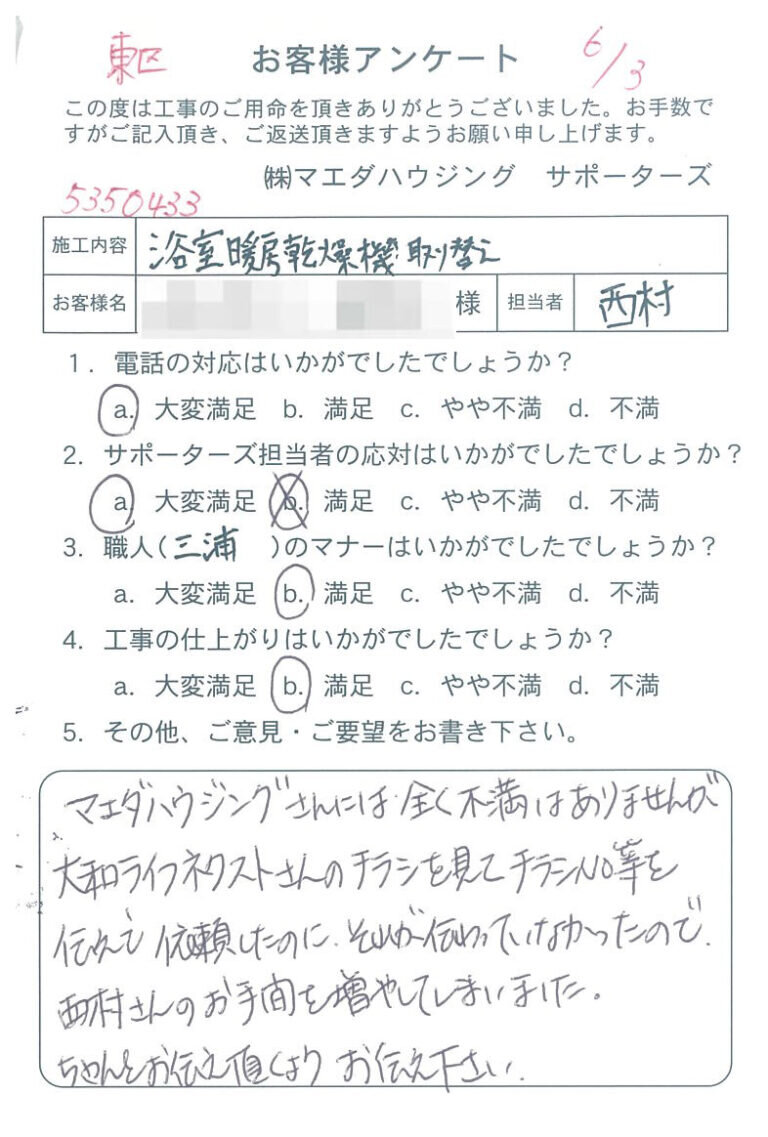 東区 お客様アンケート 6/3
この度は工事のご用命を頂きありがとうございました。お手数で
すがご記入頂き、ご返送頂きますようお願い申し上げます。
㈱マエダハウジング サポーターズ
5350433
施工内容 浴室暖房乾燥機取り替え
お客様名 様 担当者 西村
1. 電話の対応はいかがでしたでしょうか？
a. 大変満足 b. 満足 c. やや不満 d. 不満
2. サポーターズ担当者の応対はいかがでしたでしょうか？
a 大変満足 b. 満足 c. やや不満 d. 不満
3. 職人(三浦 )のマナーはいかがでしたでしょうか？
a. 大変満足 b. 満足 c. やや不満 d. 不満
4. 工事の仕上がりはいかがでしたでしょうか？
a. 大変満足 b. 満足 c. やや不満 d. 不満
5. その他、ご意見・ご要望をお書き下さい。
マエダハウジングさんには全く不満はありませんが
大和ライフネクストさんのチラシを見てチラシNO等を
伝えて依頼したのに、それが伝わっていなかったので、
西村さんのお手間を増やしてしまいました。
ちゃんとお伝え頂くよう お伝え下さい.